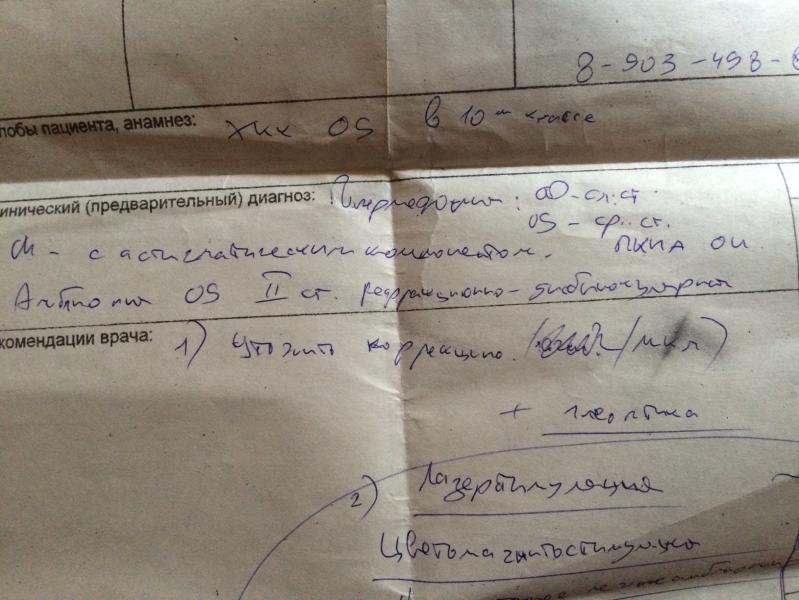 8-903-498-
лобы пациента, анамнез: OS в 10ом классе
инический (предварительный) диагноз: Гиперметропия: OD - сл. ст.
OS - ср. ст.
с астигматическим компонентом. ПХИА OU.
Амблиопия OS II ст. рефракционно-дисбинокулярная
комендации врача: 1) Уточнить коррекцию (/ мкл)
+ плеоптика
2) Лазерстимуляция
Цветомагнитостимуляция